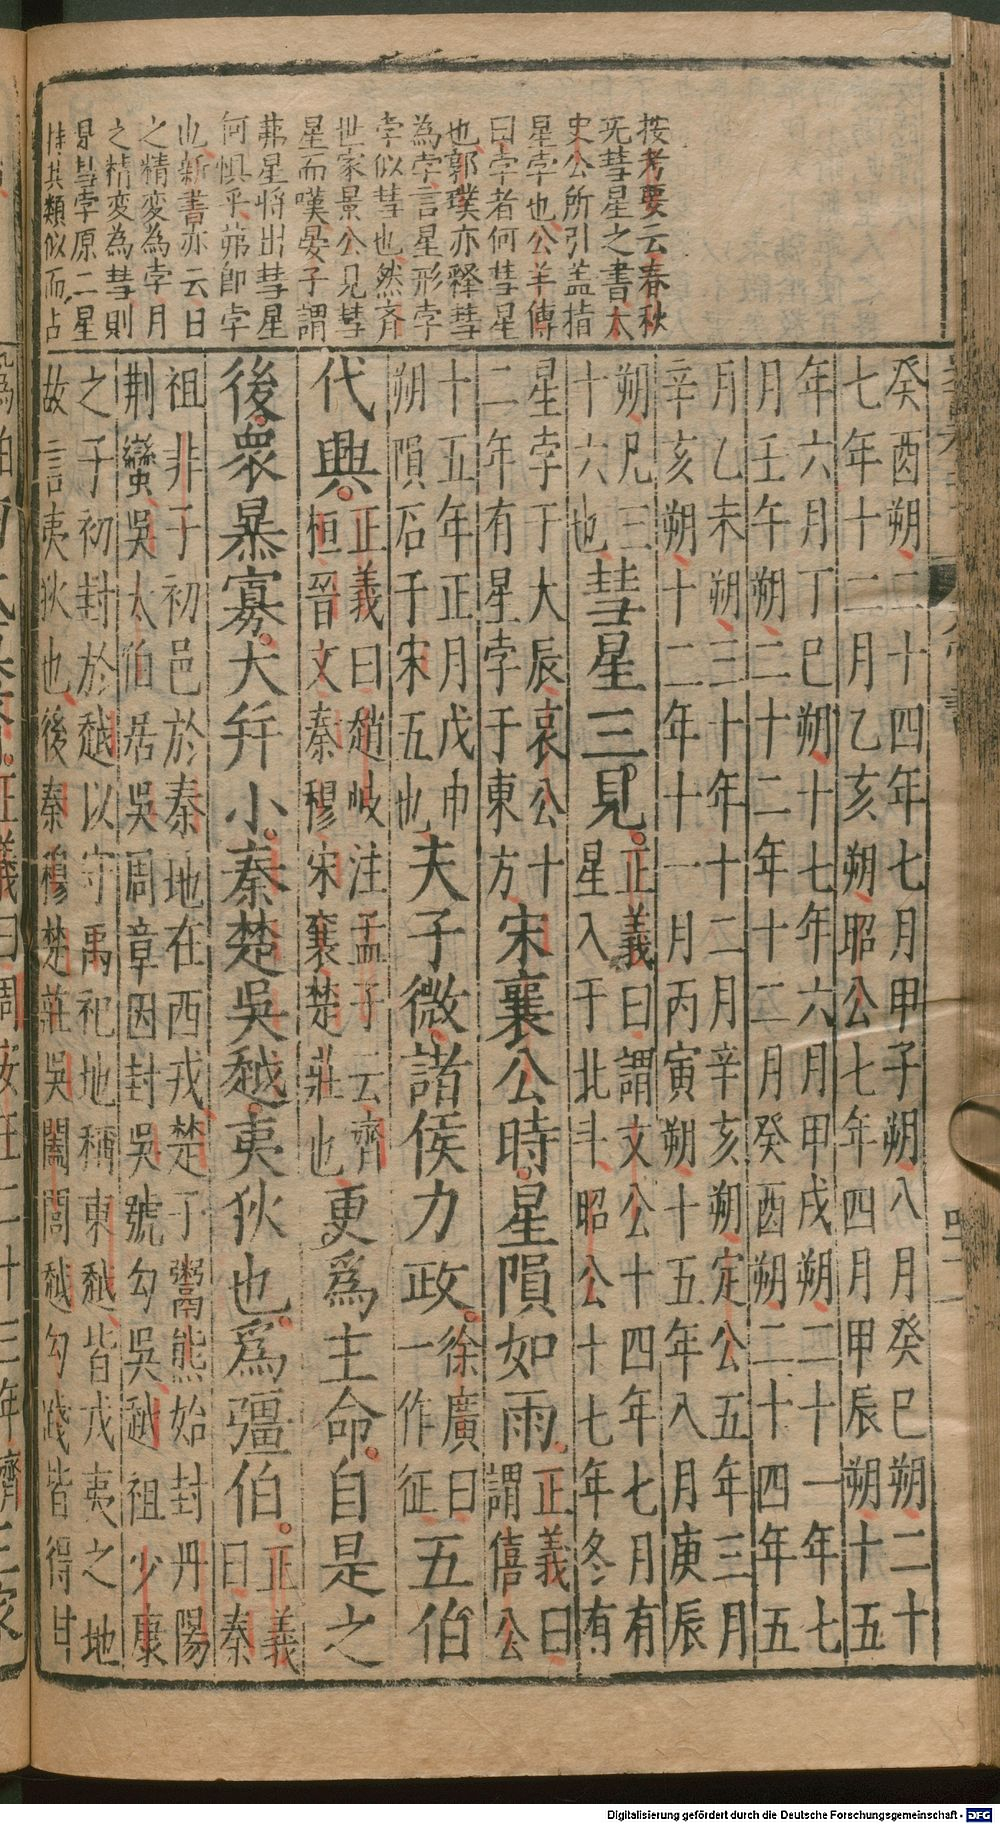 按考要云春秋
无彗星之書太
史公所引盖指
星孛也公羊傳
曰孛者何彗星
也郭璞亦釋彗
為孛言星形孛
孛似彗也然齊
世家景公見彗
星而嘆晏子謂
茀星將出彗星
何惧乎茀即孛
也新書亦云日
之精変為孛月
之精変為彗則
是彗孛原二星
特其類似而占
癸酉朔二十四年七月甲子朔八月癸巳朔二十
七年十二月乙亥朔昭公七年四月甲辰朔十五
年六月丁巳朔十七年六月甲戌朔二十一年七
月壬午朔二十二年十二月癸酉朔二十四年五
月乙未朔三十年十二月辛亥朔定公五年三月
辛亥朔十二年十一月丙寅朔十五年八月庚辰
朔凡三
十六也
彗星三見
正義曰謂文公十四年七月有
星入于北斗昭公十七年冬有
星孛于大辰哀公十
二年有星孛于東方
宋襄公時星隕如雨
正義曰
謂僖公
十五年正月戊申
朔隕石于宋五也
夫子微諸侯力政
徐廣曰
一作征
五伯
代興
正義曰趙岐注孟子云齊
桓晉文秦穆宋襄楚莊也
更爲主命自是之
後衆暴寡大幷小秦楚吳越夷狄也爲彊伯
正義
曰秦
祖非子初邑於秦地在西戎楚子鬻熊始封丹陽
荆蠻吳太伯居吳周章因封吳號勾吳越祖少康
之子初封於越以守禹祀地稱東越皆戎夷之地
故言夷狄也後秦穆楚莊吳闔閭越勾踐皆得封
四一
Digitalisierung gefördert durch die Deutsche Forschungsgemeinschaft - DFG